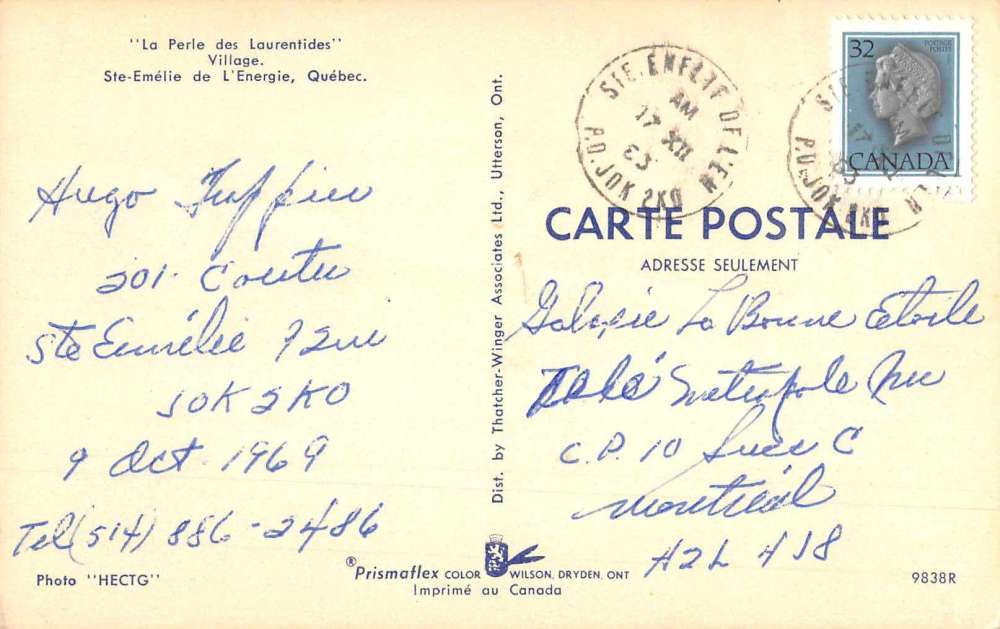 "La Perle des Laurentides"
Village.
Ste-Emélie de L'Energie, Québec.
Hugo
201 Coutu
Ste Emélie
J0K 2K0
9 Oct. 1969
Tel (514) 886-2486
Photo "HECTG"
Dist. by Thatcher-Winger Associates Ltd., Utterson, Ont.
®Prismaflex COLOR WILSON, DRYDEN, ONT
Imprimé au Canada
STE. EMELIE DE L'EN
AM
17 XII
83
P.Q. J0K 2K0
32
POSTAGE
POSTES
CANADA
CARTE POSTALE
ADRESSE SEULEMENT
Galaxie La Bonne Etoile
Télé Métropole Inc
C.P. 10 Succ C
Montréal
H2L 4J8
9838R